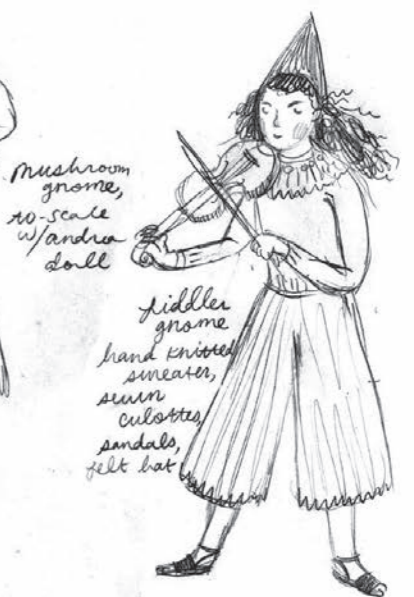 mushroom
gnome,
to-scale
w/andrea
doll
fiddler
gnome
hand knitted
sweater,
sewn
culottes,
sandals,
felt hat